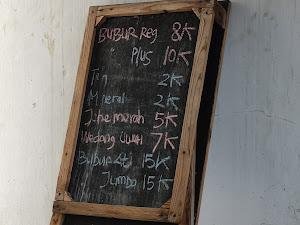 BUBUR Reg 8K
" Plus 10K
Teh 2K
Mineral 2K
Jahe merah 5K
Wedang Uwuh 7K
Bubur Ati 15K
Jumbo 15K